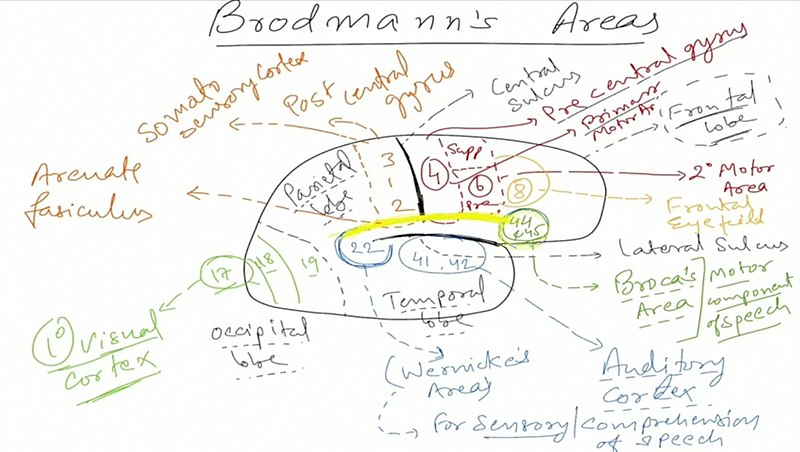 Brodmann's Areas
Somato
sensory cortex
Post central
gyrus
Central
Sulcus
Pre central gyrus
Primary
Motor Ar.
Frontal
lobe
Arcuate
fasiculus
Parietal
lobe
3
1
2
4
Supp
6
Pre
8
2° Motor
Area
Frontal
Eye field
44
&45
22
41, 42
Lateral Sulcus
17
18
19
Temporal
lobe
Broca's
Area
Motor
component
of speech
1° Visual
cortex
Occipital
lobe
(Wernicke's
Area)
Auditory
Cortex
For Sensory/comprehension
of speech